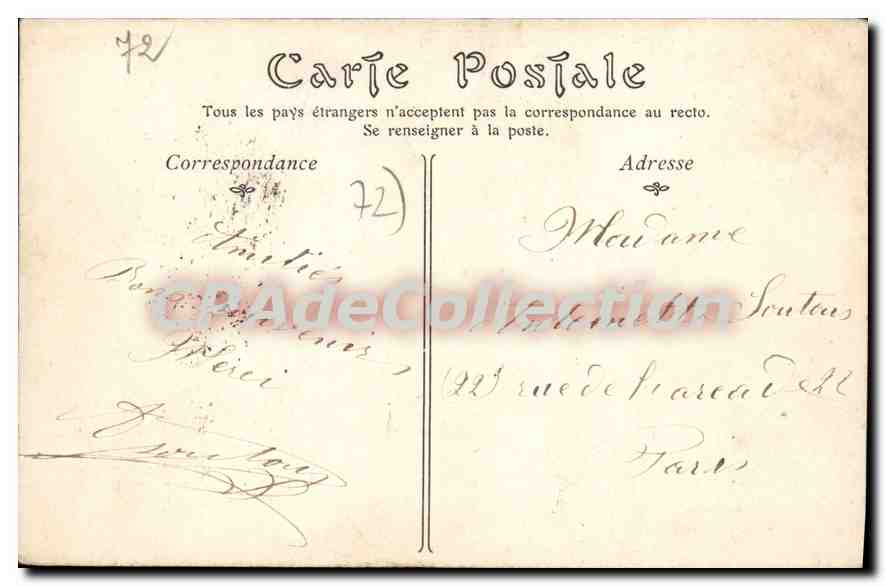 72
Carte Postale
Tous les pays étrangers n'acceptent pas la correspondance au recto.
Se renseigner à la poste.
Correspondance
72)
Amitiés
Bons Souvenirs
Merci
Adresse
Madame
Soutous
(22) rue de 22
Paris
CPAdeCollection